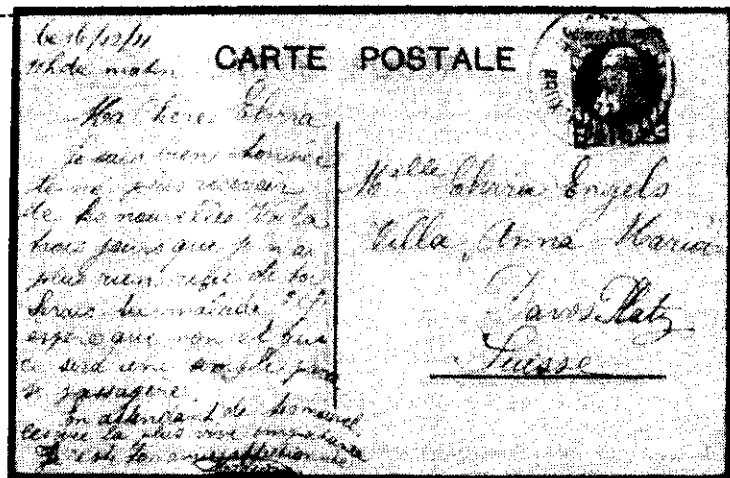 Le 16/12/11
CARTE POSTALE
matin
Ma chere
Je suis bien
te ne plus recevoir
de tes nouvelles Voila
trois jours que je n'ai
plus rien reçu de toi
Serais tu malade
espère que non et que
ce sera une simple
passagere
En attendant de tes nouvel
les la plus vive impatience
Je reste ton
Mlle Engels
Villa Anna Maria
Davos Platz
Suisse